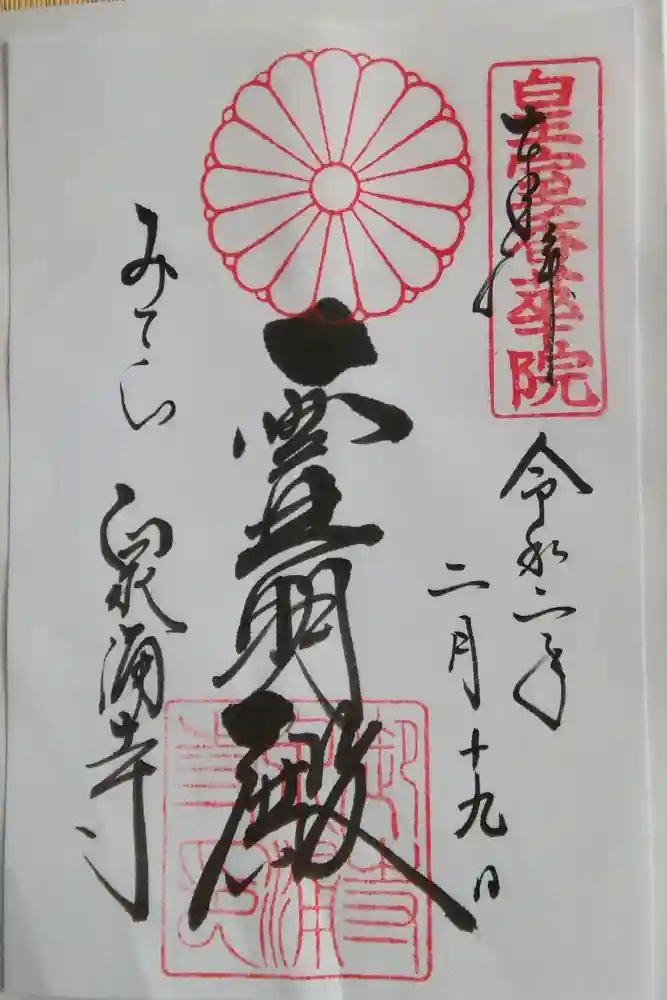 皇室香華院
奉拝
令和二年
二月十九日
霊明殿
みてら 泉涌寺
御寺
泉涌